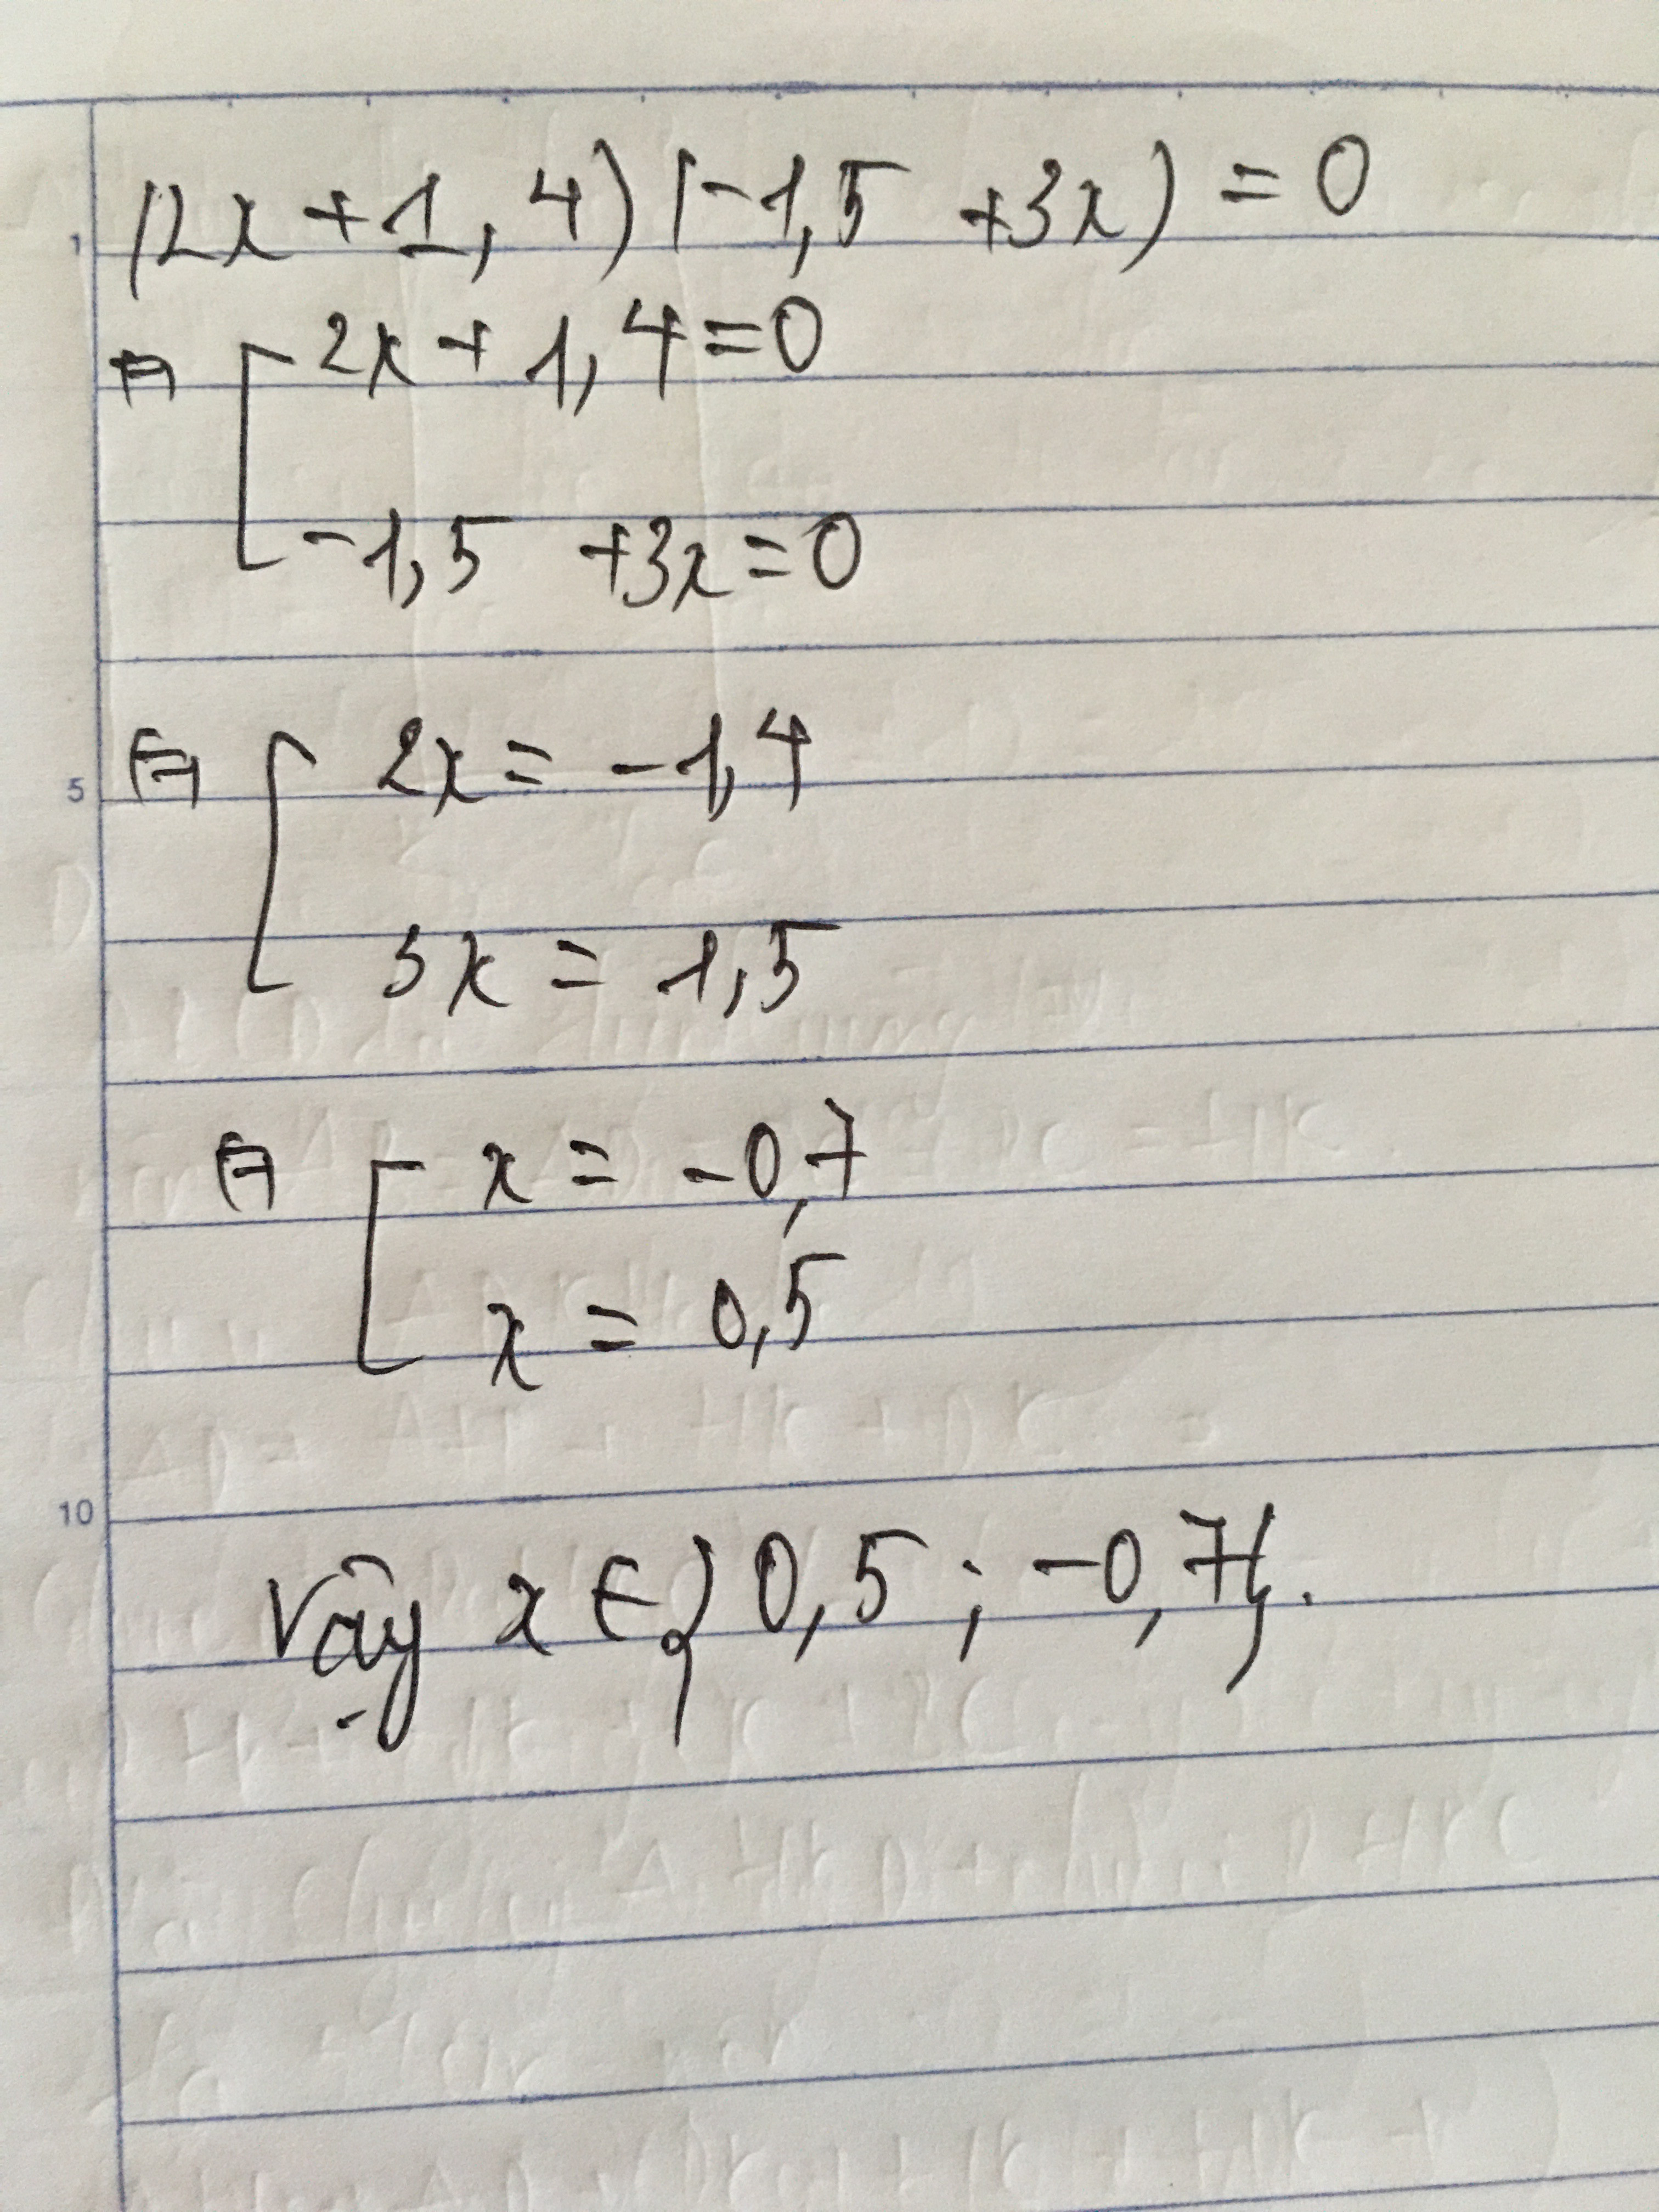 1
(2x + 1,4)(-1,5 + 3x) = 0
⇔ [ 2x + 1,4 = 0
-1,5 + 3x = 0
5
⇔ [ 2x = -1,4
3x = 1,5
⇔ [ x = -0,7
x = 0,5
10
Vậy x ∈ { 0,5 ; -0,7}.